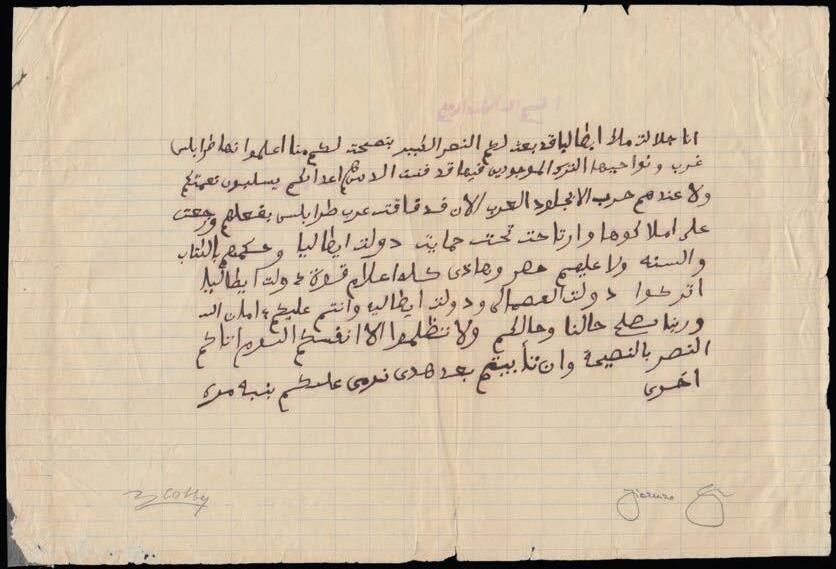 انا جلالت ملك ايطاليا قد بعت لكم النصر الكبير بنصحت لكم منا اعلموا انها طرابلس
غرب ونواحيها الترك الموجودين فيها قد فنت الاننهم اعدائكم يسلبون نعمتكم
ولا عندهم حرب الا بجلود العرب الان قد فاقت عرب طرابلس بفعلهم ورجعت
على املاكوها وارتاحت تحت حمايت دولت ايطاليا وحكمهم بالكتاب
والسنه ولا عليهم حصر وهادى كله اعلام قوة دولت ايطاليا
اتركوا دولت العصملى ودولت ايطاليه وانتم عليكم امان الله
وربنا يصلح حالنا وحالكم ولا تظلموا الا انفسكم اليوم اتاكم
النصر بالنصيحة وان تأبيتم بعد هدى نرمى عليكم بنبه مره
اخرى